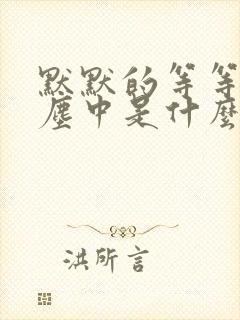 默默的等等
塵中是什麼
洪所言